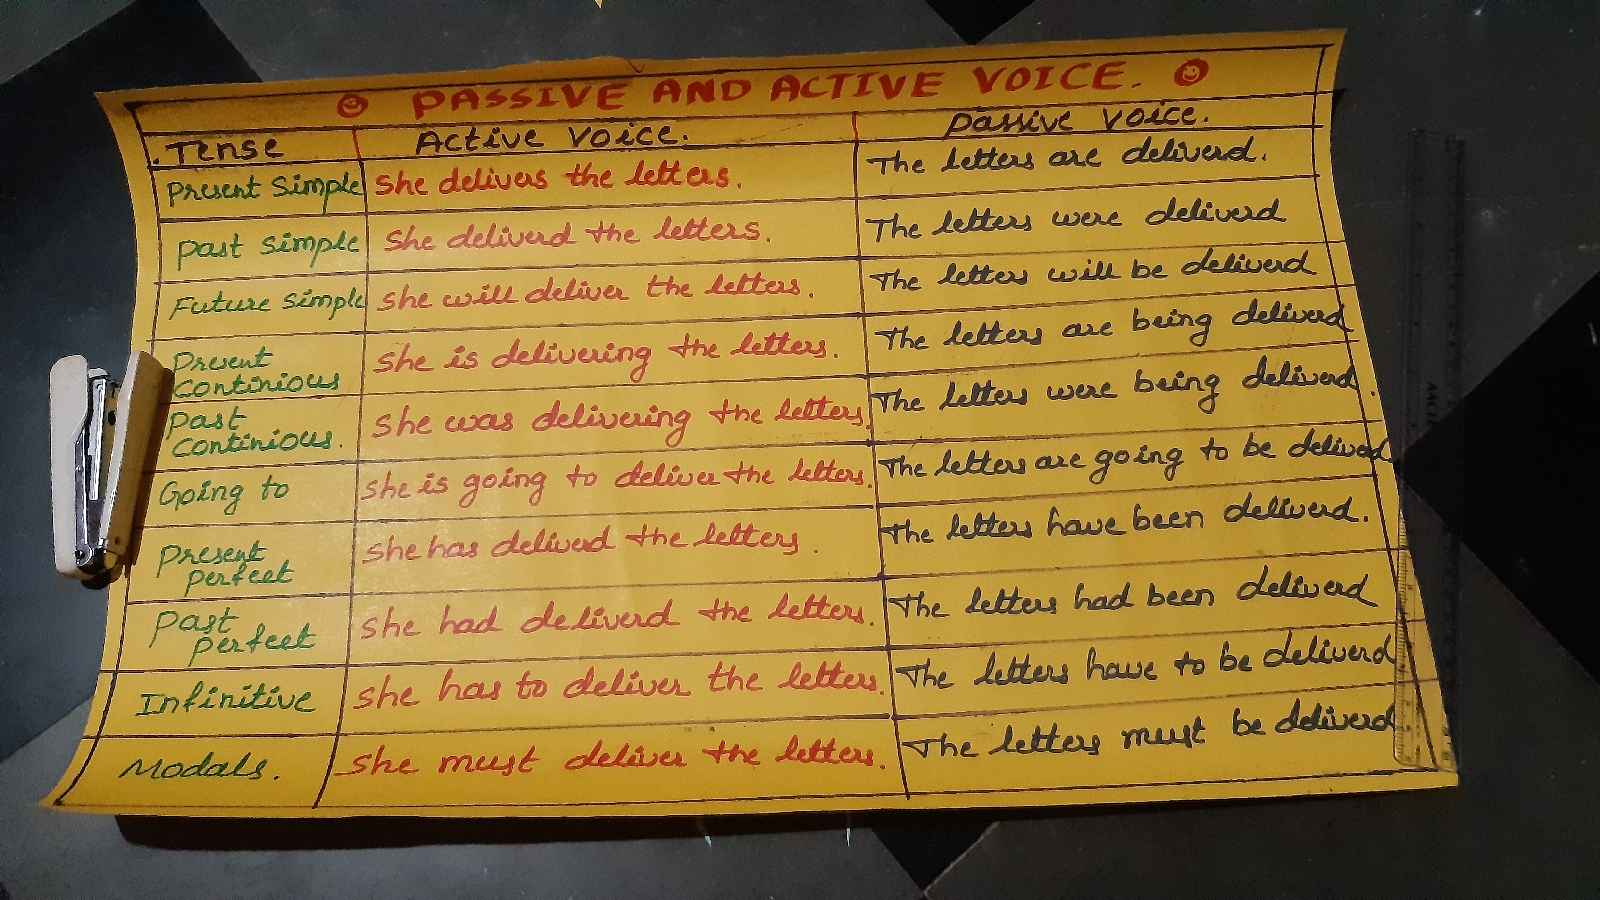 PASSIVE AND ACTIVE VOICE.
Tense Active Voice. Passive Voice.
Present Simple She delivers the letters. The letters are deliverd.
Past Simple She deliverd the letters. The letters were deliverd
Future Simple She will deliver the letters. The letters will be deliverd
Present She is delivering the letters. The letters are being deliverd
Continious
Past She was delivering the letters. The letters were being deliverd.
Continious.
Going to She is going to deliver the letters. The letters are going to be deliverd
Present She has deliverd the letters. The letters have been deliverd.
Perfect
Past She had deliverd the letters. The letters had been deliverd
Perfect
Infinitive She has to deliver the letters. The letters have to be deliverd
Modals. She must deliver the letters. The letters must be deliverd